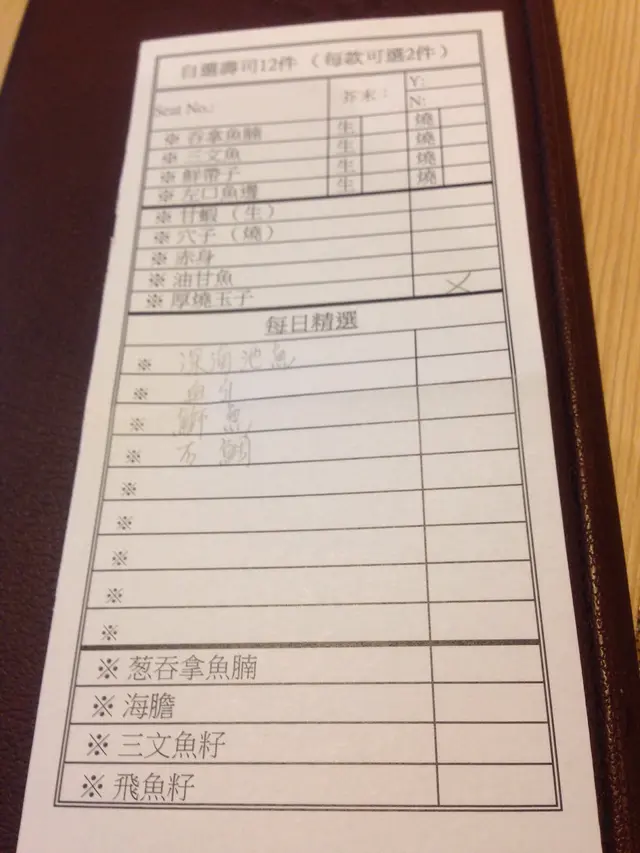 自選壽司12件（每款可選2件）
Seat No.: 芥末： Y:
N:
※ 吞拿魚腩 生 燒
※ 三文魚 生 燒
※ 鮮帶子 生 燒
※ 左口魚邊 生 燒
※ 甘蝦（生）
※ 穴子（燒）
※ 赤身
※ 油甘魚
※ 厚燒玉子 X
每日精選
※ 深海池魚
※
※ 鰤魚
※ 石鯛
※
※
※
※
※
※ 葱吞拿魚腩
※ 海膽
※ 三文魚籽
※ 飛魚籽